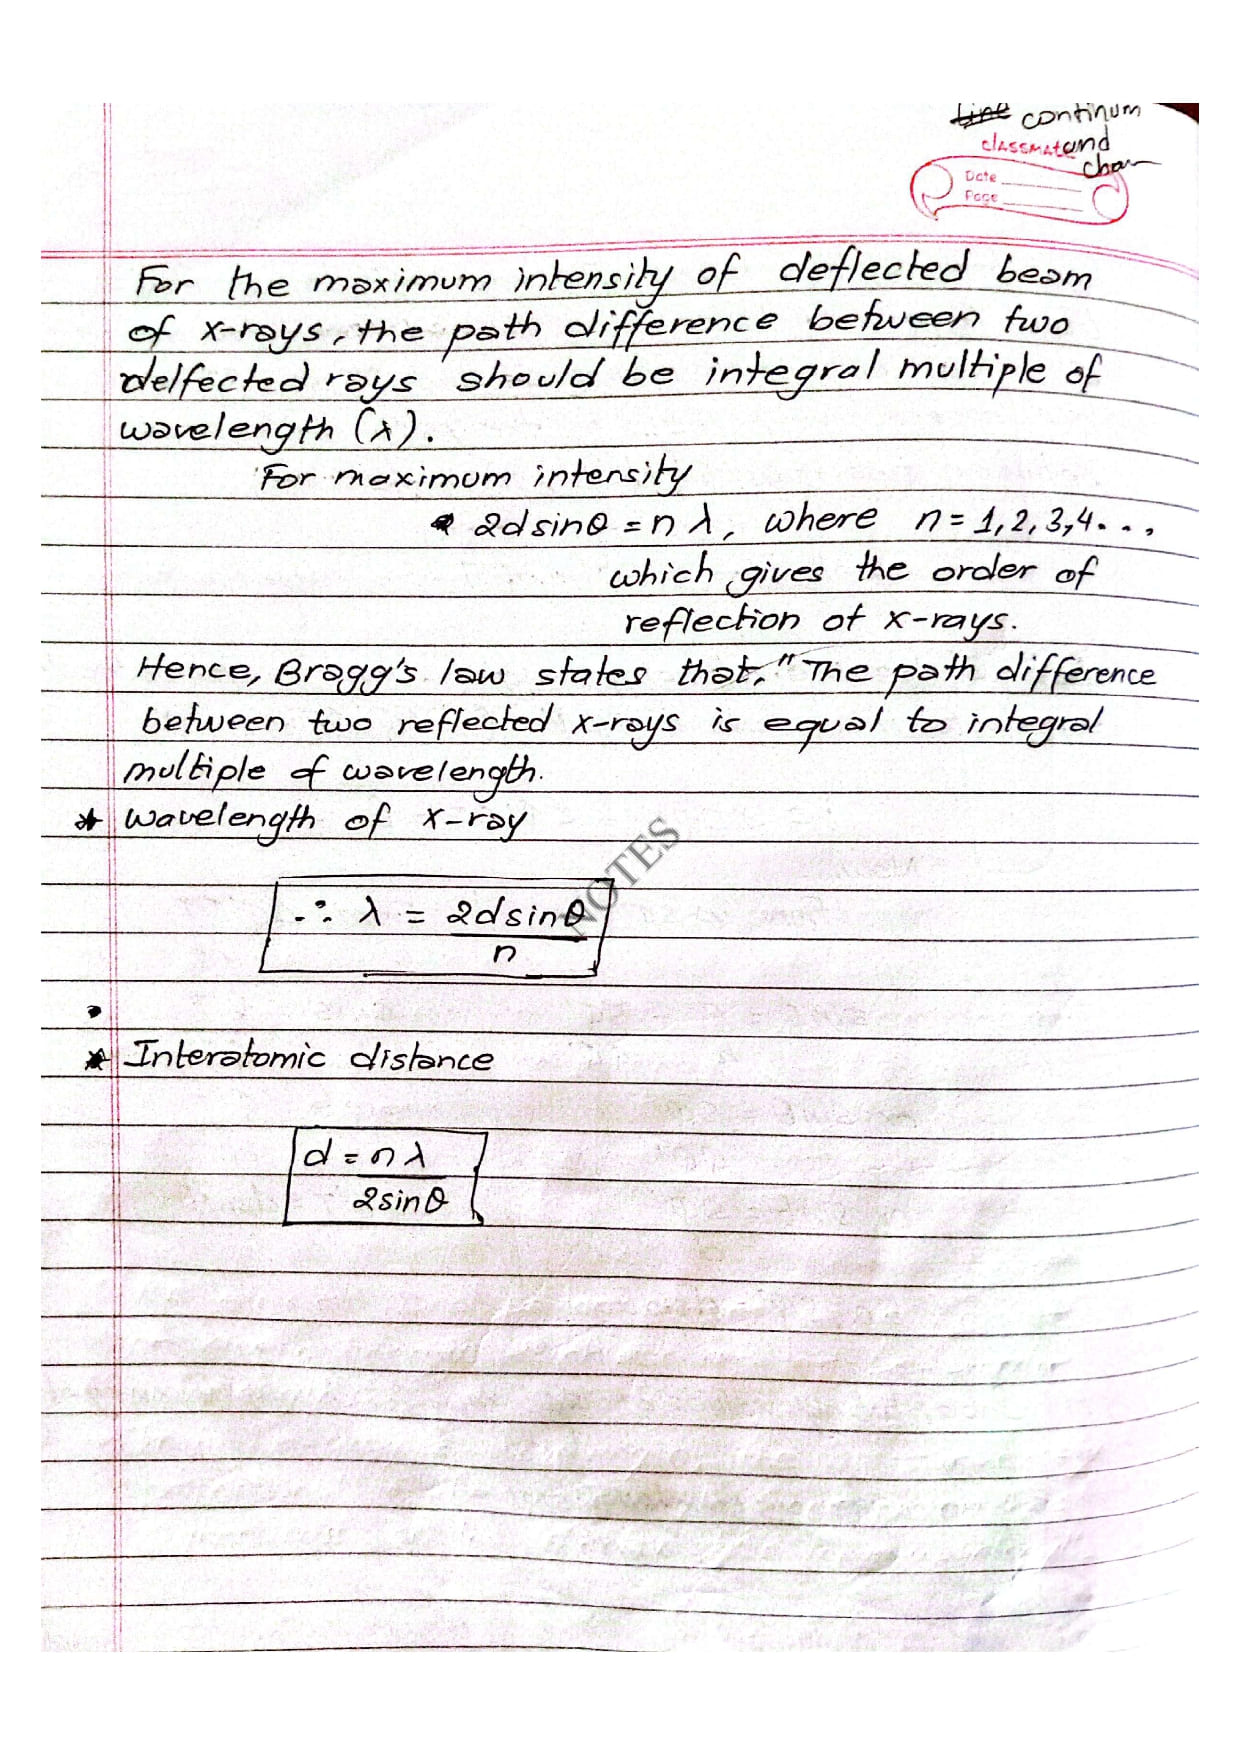 continum
classmate and
char
Date
Page
For the maximum intensity of deflected beam
of x-rays, the path difference between two
delfected rays should be integral multiple of
wavelength (λ).
For maximum intensity
2dsinθ = nλ, where n = 1, 2, 3, 4...,
which gives the order of
reflection of x-rays.
Hence, Bragg's law states that, "The path difference
between two reflected x-rays is equal to integral
multiple of wavelength.
* Wavelength of X-ray
NOTES
∴ λ = 2dsinθ
n
* Interatomic distance
d = nλ
2sinθ